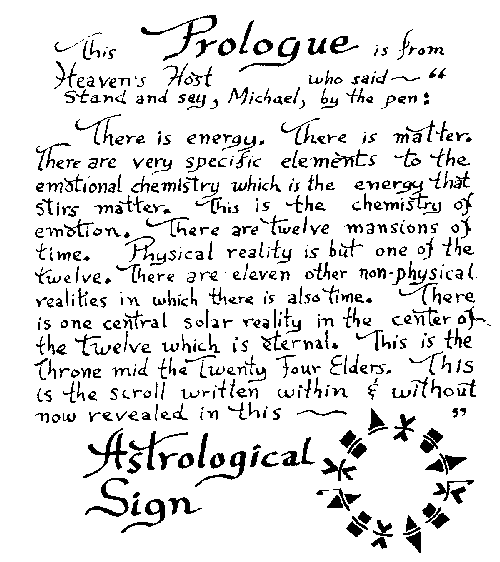 This Prologue is from
Heaven's Host who said ~ “
Stand and say, Michael, by the pen:
There is energy. There is matter.
There are very specific elements to the
emotional chemistry which is the energy that
stirs matter. This is the chemistry of
emotion. There are twelve mansions of
time. Physical reality is but one of the
twelve. There are eleven other non-physical
realities in which there is also time. There
is one central solar reality in the center of
the twelve which is eternal. This is the
Throne mid the Twenty Four Elders. This
is the scroll written within & without
now revealed in this ~ ”
Astrological
Sign